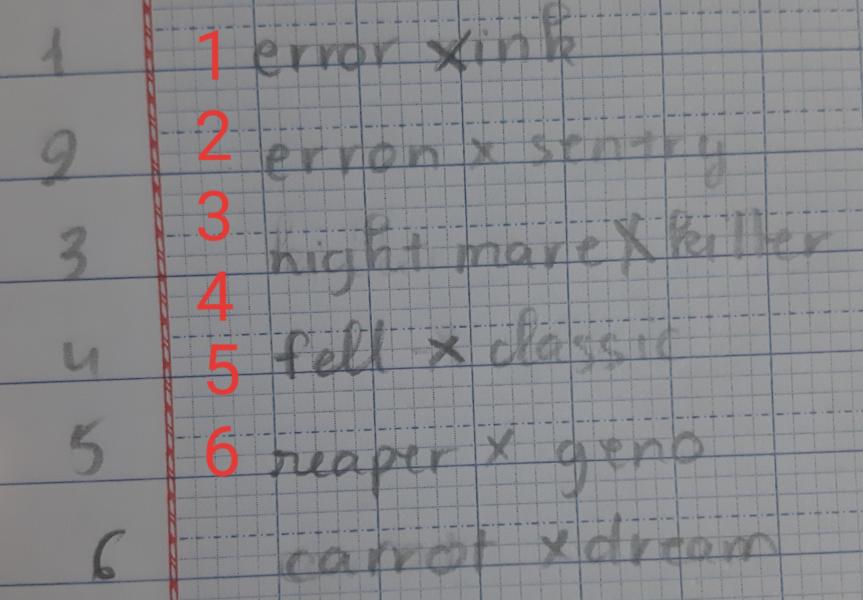 1 1 error x ink
2 2 error x sentry
3 3 nightmare X killer
4 4 fell x classic
5 5 reaper x geno
6 6 carrot x dream